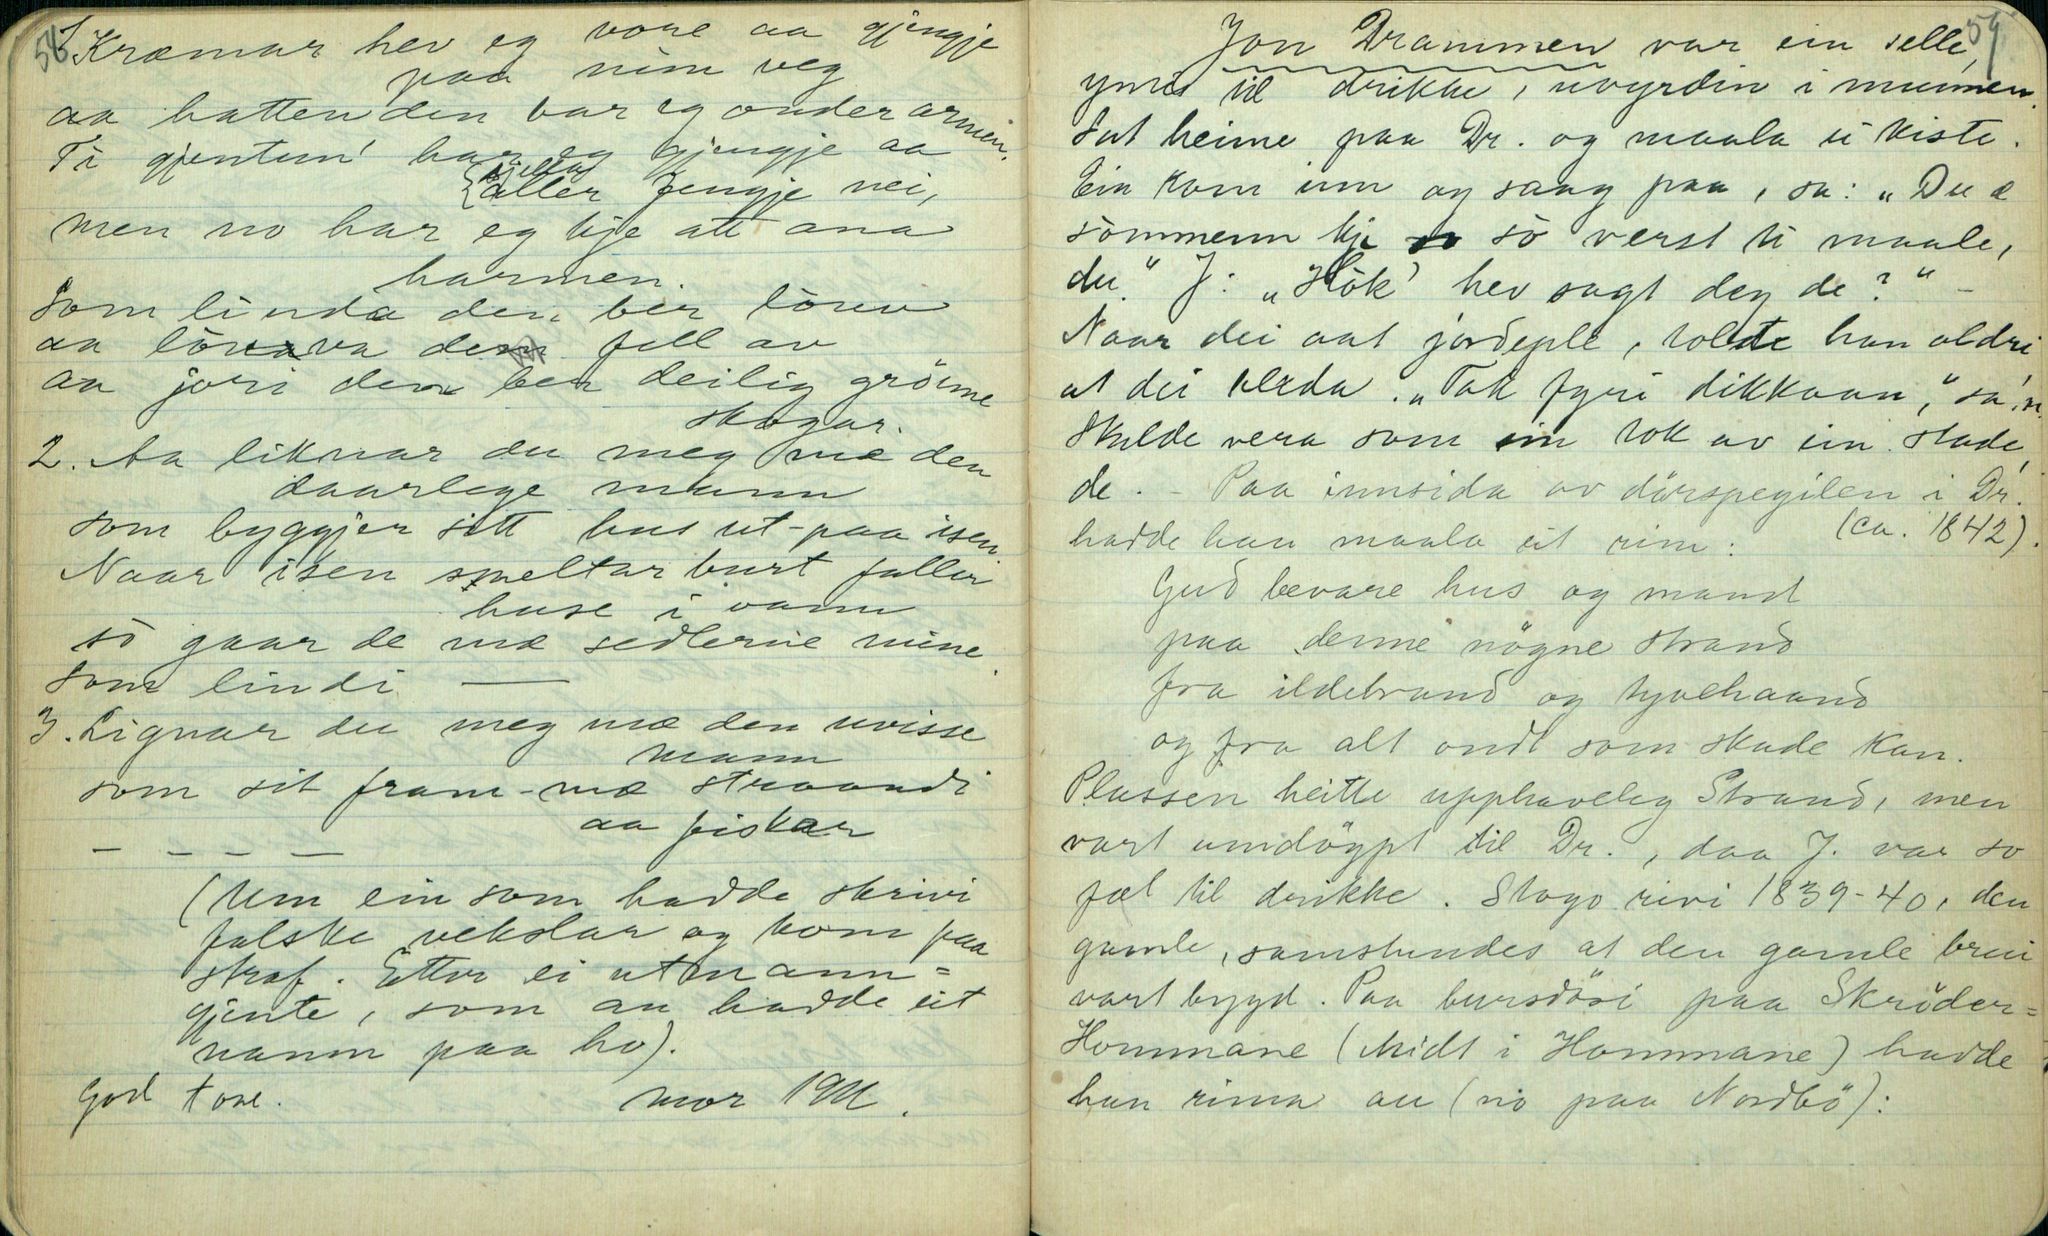 58
Kræmar hev eg vore aa gjengje
paa min veg
aa hatten den bar eg onder armin.
Ti gjentun' har eg gjengje aa
{aller fengje nei,
men no har eg kje att ana
harmen.
Som linda den ber löuv
aa löuva den fell av
aa jori den ber deilig gröne
skogar.
2. Aa liknar du meg mæ den
daarlege mann
som byggjer sitt hus ut-paa isen
Naar isen smeltar burt faller
huse i vann
so gaar de mæ sedlerne mine
Som lindi —
3. Lignar du meg mæ den uvisse
mann
som sit fram-mæ straandi
aa fiskar
— — — —
(Um ein som hadde skrivi
falske vekslar og kom paa
straf. Etter ei utmann=
gjente, som an hadde eit
namn paa ho).
God tone. mor 1911.
59
Jon Drammen var ein selle,
ymis til drikke, uvyrdin i munnen.
Sat heime paa Dr. og maala ei kiste.
Ein kom inn og saag paa, sa: "Du æ
sömmenn kje so verst ti maale,
du." J: "Hök' hev sagt deg de?" –
Naar dei aat jordeple, tolde han aldri
at dei . "Tak fyri dikkaan," sa'n.
Skulde vera som ein tok av ein stade,
de. – Paa innsida av dörspegilen i Dr.
hadde han maala eit rim: (ca. 1842).
Gud bevare hus og mand
paa denne nögne strand
fra ildebrand og tyvehaand
og fra alt ondt som skade kan.
Plassen heitte upphaveleg Strand, men
vart umdöypt til Dr., daa J. var so
fæl til drikke. Stogo rivi 1839-40, den
gamle, samstundes at den gamle brui
vart bygd. Paa bursdöri paa Skröder=
Hommane (Midt i Hommane) hadde
han rima au (no paa Nordbö):